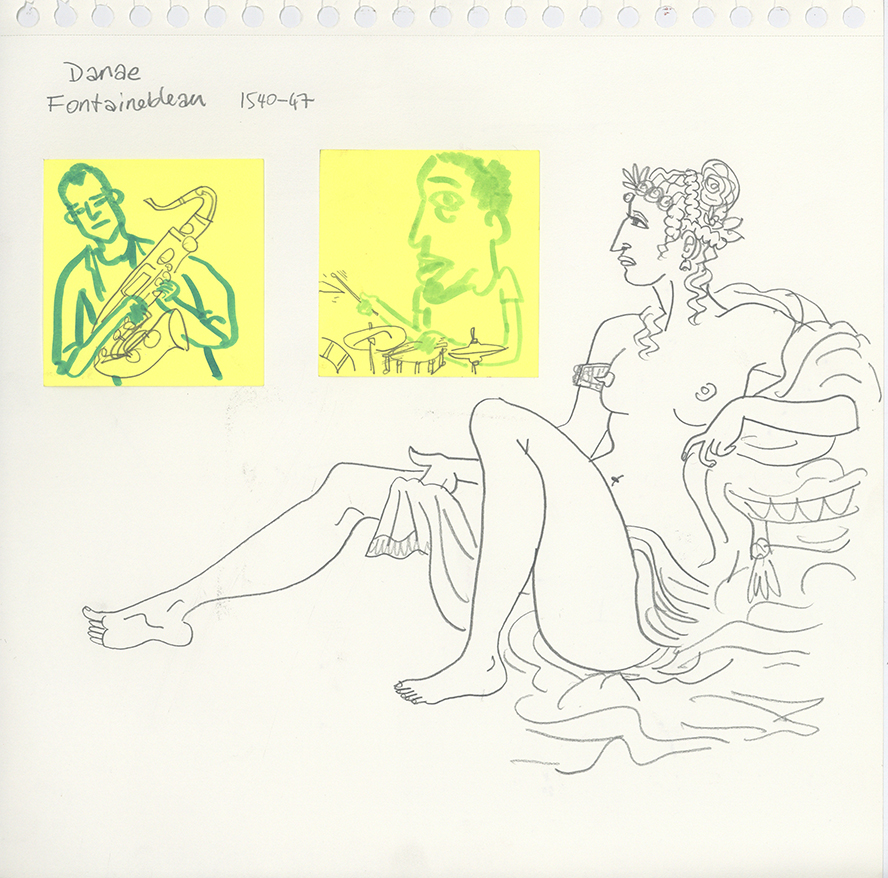 Danae
Fontainebleau 1540-47